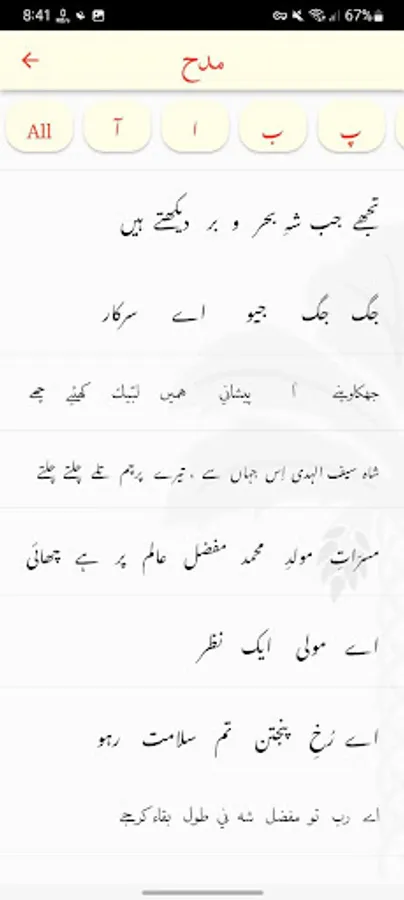 8:41 67%
مدح
All آ ا ب پ
تجھے جب شہِ بحر و بر دیکھتے ہیں
جگ جگ جیو اے سرکار
جھکاوينے أ پيشاني هميں لبّيك كهئيے چھے
شاہ سیف الہدی اِس جہاں سے ، تیرے پرچم تلے چلتے چلتے
مسرّاتِ مولدِ محمد مفضل عالم پر ہے چھائی
اے مولی ایک نظر
اے رُخِ پنجتن تم سلامت رہو
اے رب تو مفضل شه ني طول بقاء كرجے